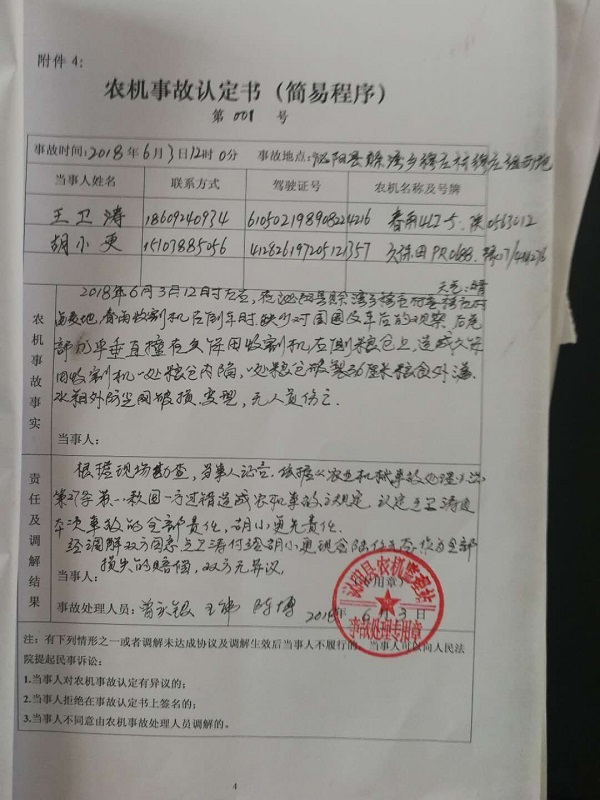 附件 4:
农机事故认定书（简易程序）
第 001 号
事故时间: 2018 年 6 月 3 日 12 时 0 分 事故地点: 泌阳县赊湾乡
当事人姓名 联系方式 驾驶证号 农机名称及号牌
王卫涛 18609240934 610502198908224216 春雨4LZ-5. 陕0563012
胡小更 15107885056 412826197205121357 久保田PRO688.
天气:晴
农机事故事实
2018年6月3日12时左右,在泌阳县赊湾乡
麦地,春雨收割机在倒车时,缺少对周围及车后的观察,后尾
部水平垂直撞在久保田收割机左侧粮仓上,造成久保
田收割机一处粮仓内陷,一处粮仓破裂 厘米粮食外溢.
水箱外防尘网破损、变型,无人员伤亡.
当事人:
责任及调解结果
根据现场勘查,当事人证言,依据《农业机械事故处理办法》
第27条第一款因一方过错造成农机事故之规定,认定王卫涛负
本次事故的全部责任,胡小更无责任.
经调解双方同意王卫涛付给胡小更现金陆仟 作为全部
当事人: 损失的赔偿,双方无异议.
（专用章）
事故处理人员: 王伟 陈博 2018年 6 月 3 日
泌阳县农机监理站
事故处理专用章
注：有下列情形之一或者调解未达成协议及调解生效后当事人不履行的，当事人可以向人民法
院提起民事诉讼:
1.当事人对农机事故认定有异议的;
2.当事人拒绝在事故认定书上签名的;
3.当事人不同意由农机事故处理人员调解的。
4